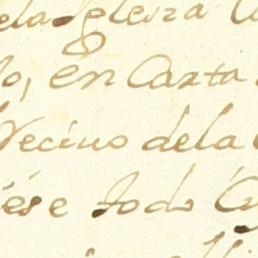 ela Iglesia
lo, en Carta
Vecino dela
ese todo